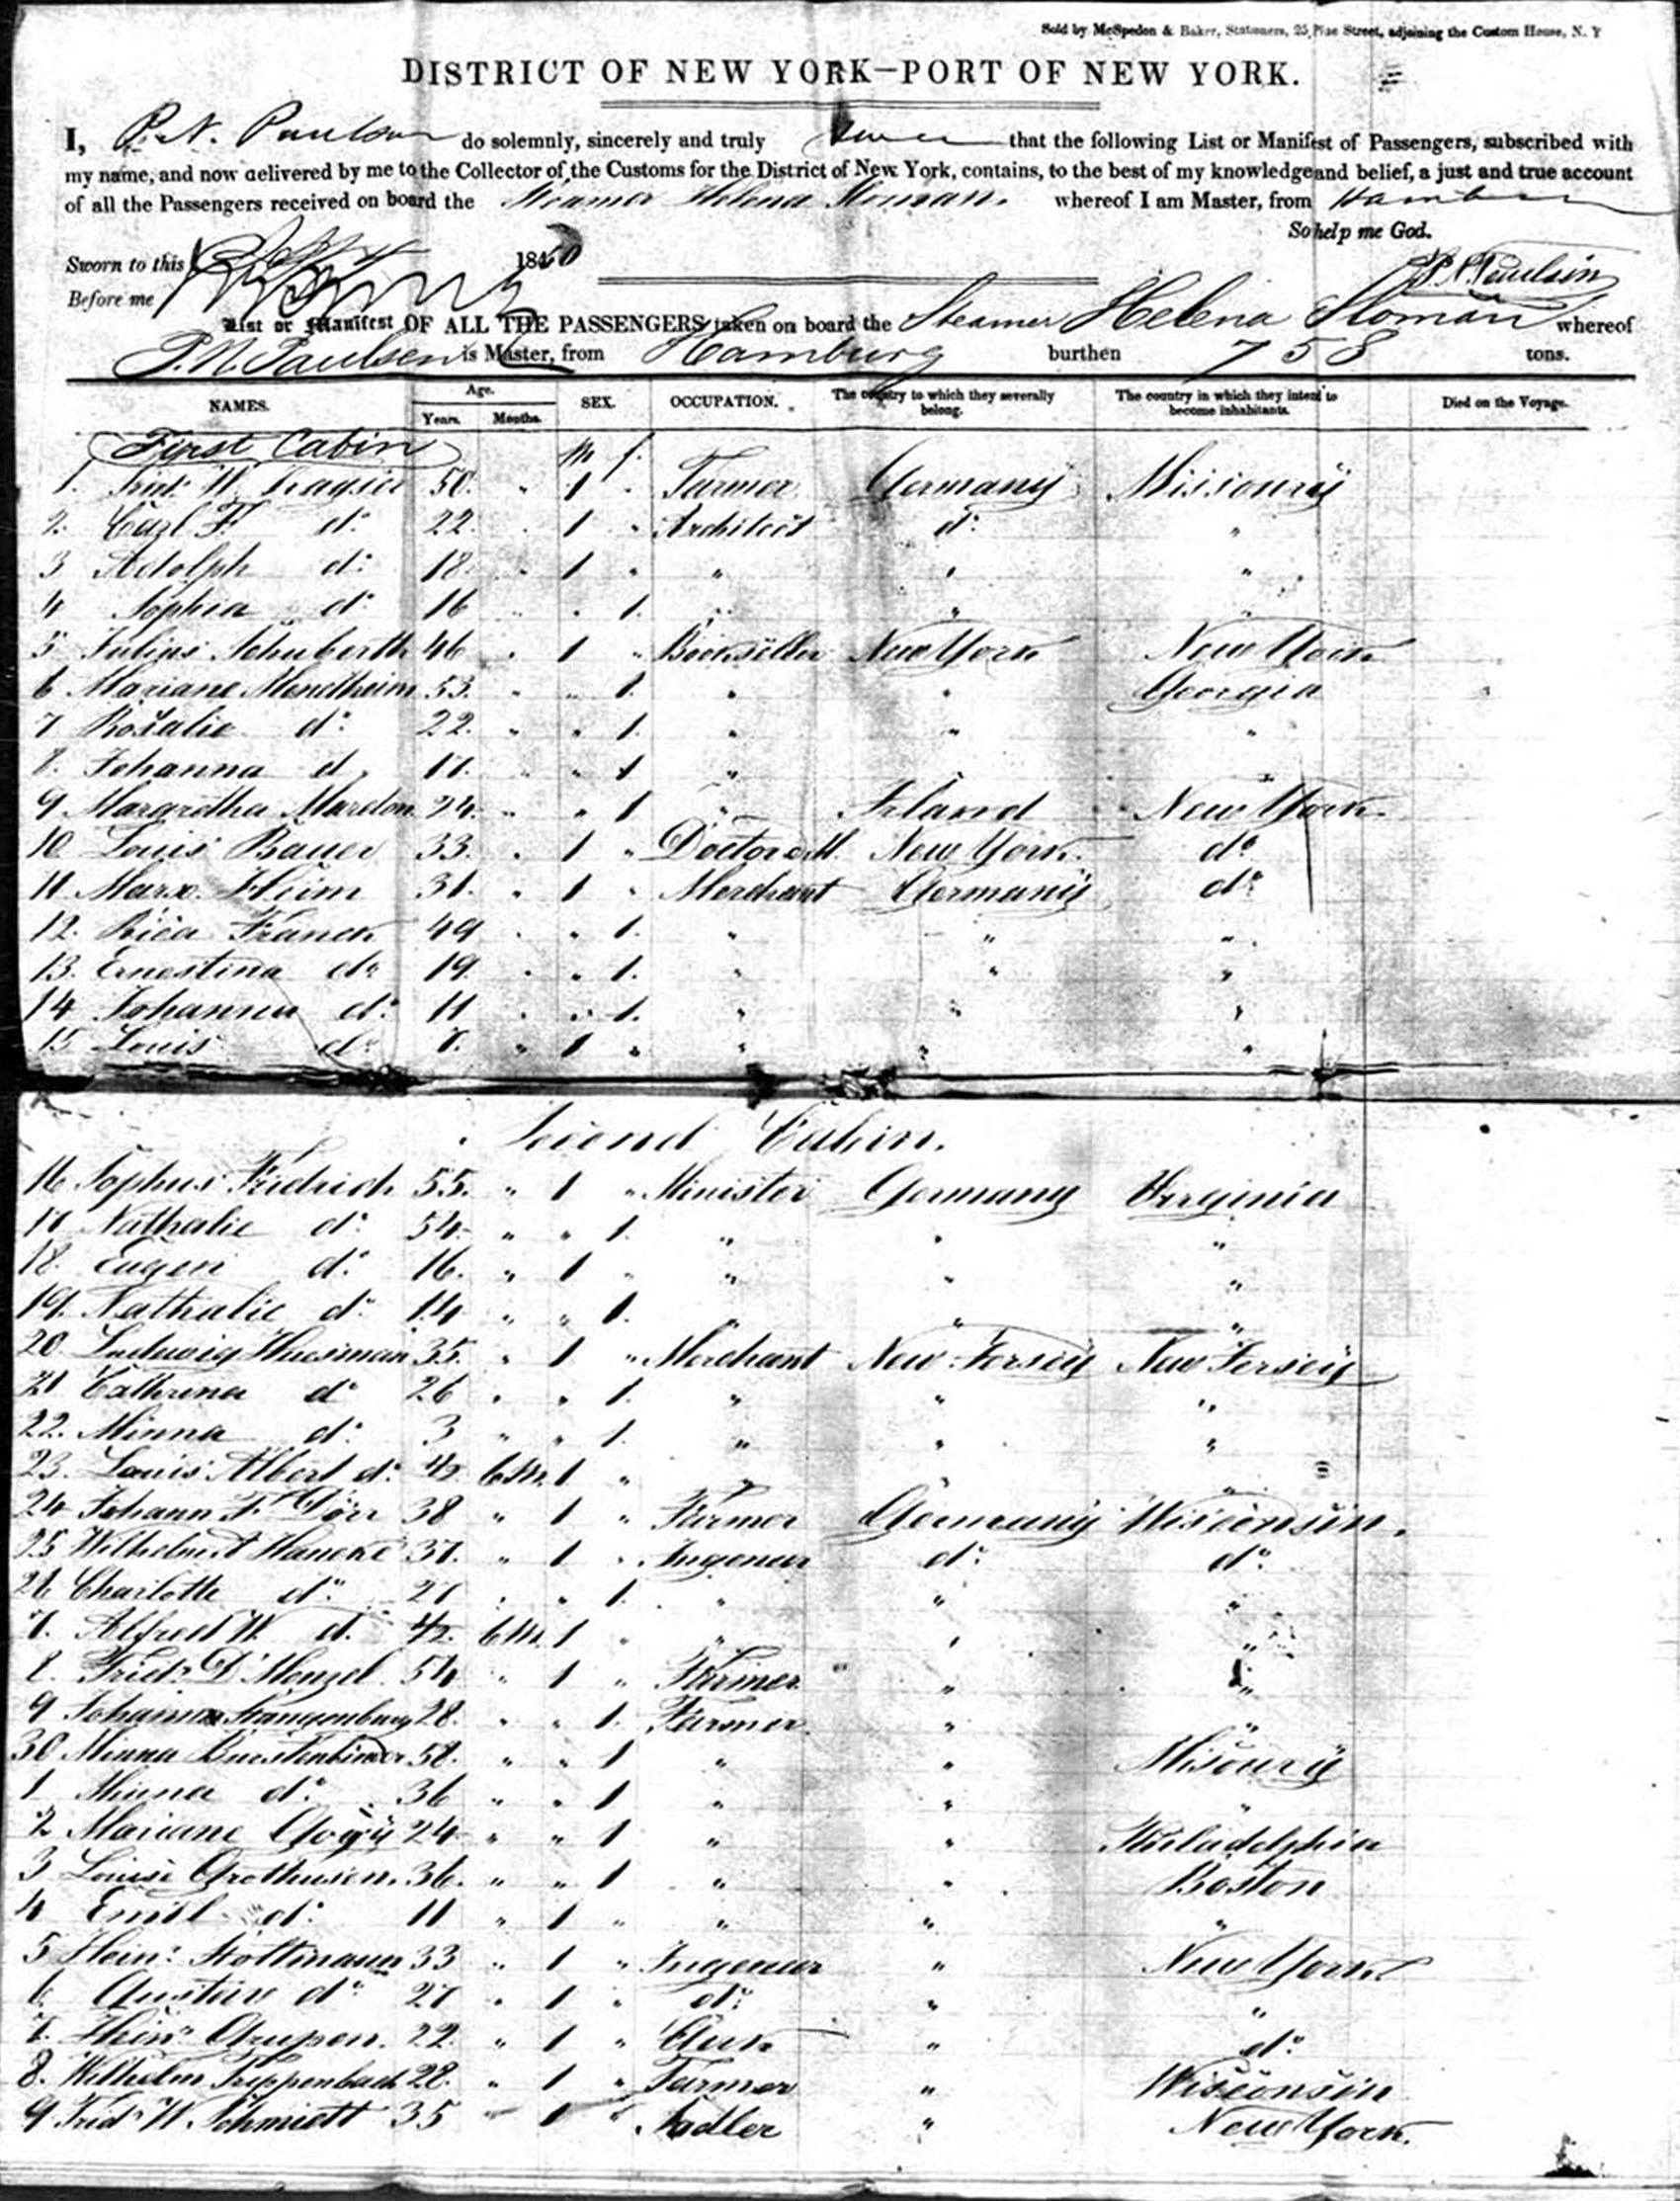 Sold by McSpedon & Baker, Stationers, 25 Pine Street, adjoining the Custom House, N. Y
DISTRICT OF NEW YORK—PORT OF NEW YORK.
I, P. N. Paulsen do solemnly, sincerely and truly swear that the following List or Manifest of Passengers, subscribed with
my name, and now delivered by me to the Collector of the Customs for the District of New York, contains, to the best of my knowledge and belief, a just and true account
of all the Passengers received on board the Steamer Helena Sloman. whereof I am Master, from Hamburg
So help me God.
Sworn to this 1850
P. N. Paulsen
Before me
List or Manifest OF ALL THE PASSENGERS taken on board the Steamer Helena Sloman whereof
P. N. Paulsen is Master, from Hamburg burthen 758 tons.
NAMES. Age. Years. Months. SEX. OCCUPATION. The country to which they severally belong. The country in which they intend to become inhabitants. Died on the Voyage.
First Cabin m f.
1. W. 50. " 1 " Farmer Germany Missoury
2. Carl F. do 22. " 1 " Architect do "
3 Adolph do 18. " 1 " " " "
4 Sophia do 16 " " 1. " " "
5 Julius Schuberth 46 " 1 " Bookseller New York New York
6 Mariane Mendheim 53. " " 1. " " Georgia
7 Rosalie do 22. " " 1. " " "
8. Johanna do 17. " " 1 " " "
9 Margaretha 24. " " 1 " Irland New York
10. Louis Bauer 33. " 1 " Doctor M. New York. do
11 Marx Heim 31. " 1 " Merchant Germany do
12. Rica Franck 49 " " 1. " " "
13. Ernestina do 19. " " 1. " " "
14 Johanna do 11 " " 1. " " "
15 Louis do 7. " 1 " " " "
Second Cabin.
16 Sophus Fridrich 55. " 1 " Minister Germany Virginia
17 Nathalie do 54. " " 1. " " "
18. Eugen do 16. " 1 " " " "
19. Nathalie do 14. " " 1. " " "
20. Ludwig Huesman 35. " 1 " Merchant New Jersey New Jersey
21 Cathrina do 26 " " 1. " " "
22. Minna do 3 " " 1. " " "
23. Louis Albert do 1/2 6 M. 1 " " "
24 Johann F. Dörr 38 " 1 " Farmer Germany Wisconsin.
25 Wilhelm Hancke 37. " 1 " Ingeneur do do
26 Charlotte do 27 " " 1. " " "
7. Alfred W. do 1/2. 6 M. 1 " " " "
8. Fried: D. Menzel 54 " 1 " Farmer " "
9 Johanna Stangenburg 28. " " 1. Farmer " "
30 Minna 58. " " 1 " " Misoury
1 Minna do 36 " " 1 " " "
2 Mariane 24 " " 1 " " Philadelphia
3 Louise Grothusen. 36. " " 1 " " Boston
4 Emil do 11 " 1 " " " "
5 Hein: Holtmann 33 " 1 " Ingeneur " New York
6 Gustav do 27 " 1 " do " "
7. Hein: Grupen. 22. " 1 " Clerk " do
8. Wilhelm Trippenbach 28. " 1 " Farmer " Wisconsin
9 Fried: W. Schmidt 35 " 1 " Sadler " New York.